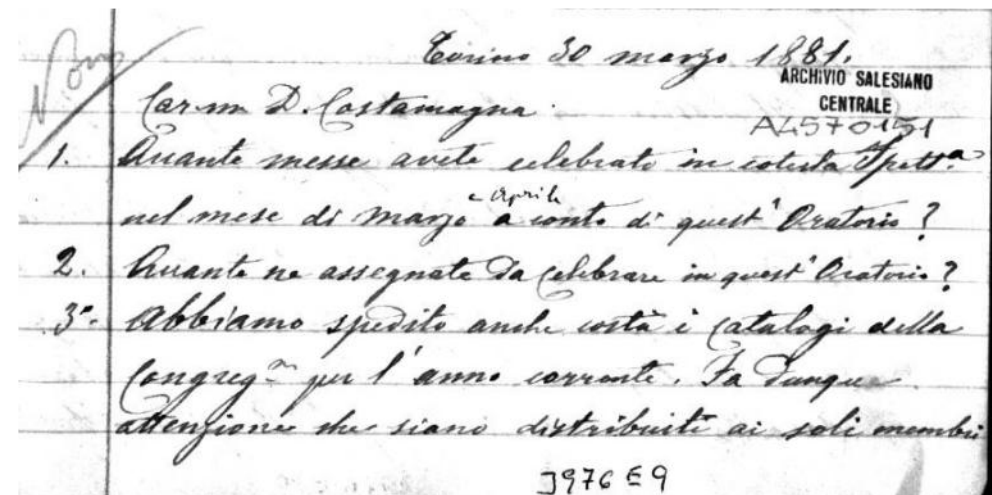 Torino 30 marzo 1881.
ARCHIVIO SALESIANO
CENTRALE
A4570151
Car.mo D. Costamagna.
1. Quante messe avete celebrato in cotesta Ispett.a
e Aprile
nel mese di Marzo a conto di quest' Oratorio?
2. Quante ne assegnate da celebrare in quest' Oratorio?
3°. Abbiamo spedito anche costà i catalogi della
Congreg.ne per l'anno corrente. Fa dunque
attenzione che siano distribuiti ai soli membri
3976 E 9